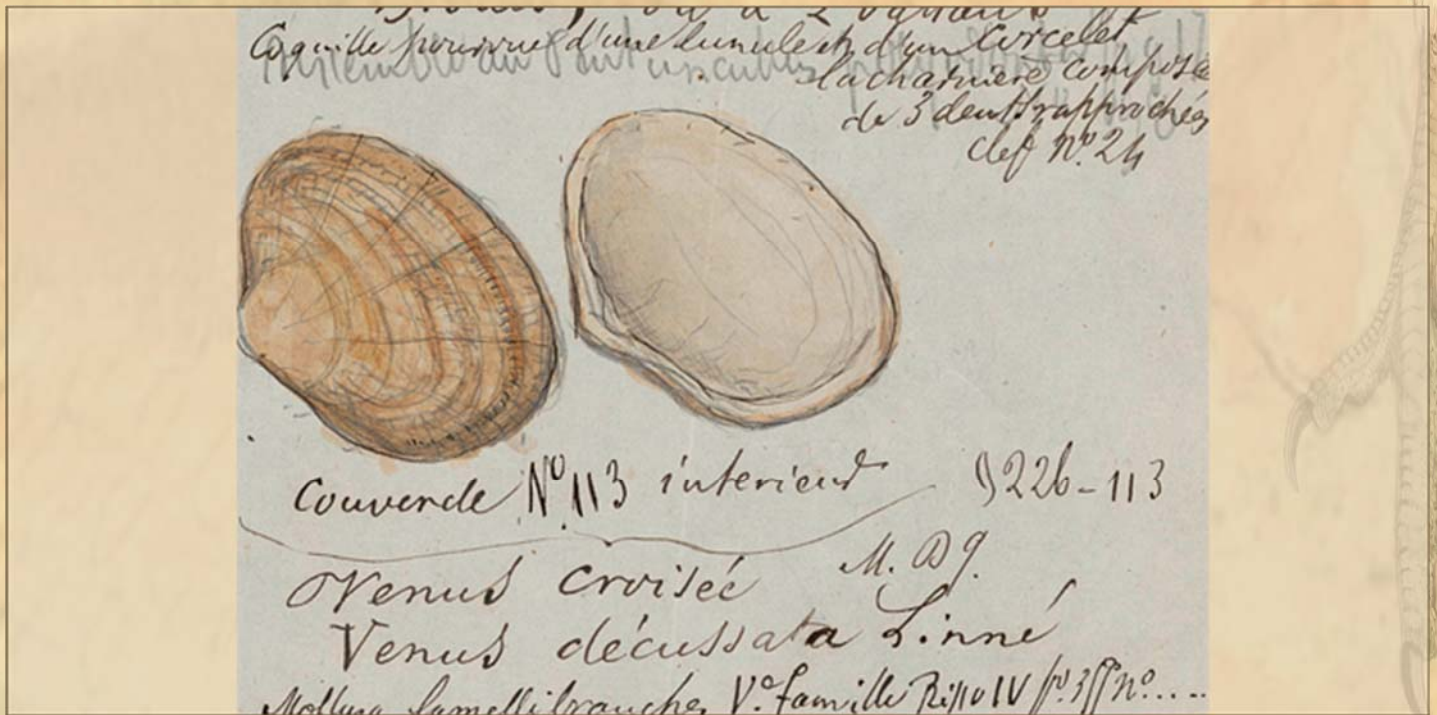 Coquille pourvue d'une lunule et d'un Corcelet
la charniere composée
de 3 dents rapprochées
clef Nº 24
Couvercle Nº 113 interieur
226-113
M. D
Venus croisée
Venus décussata Linné
Mollusq lamellibranches Vº famille Risso IV